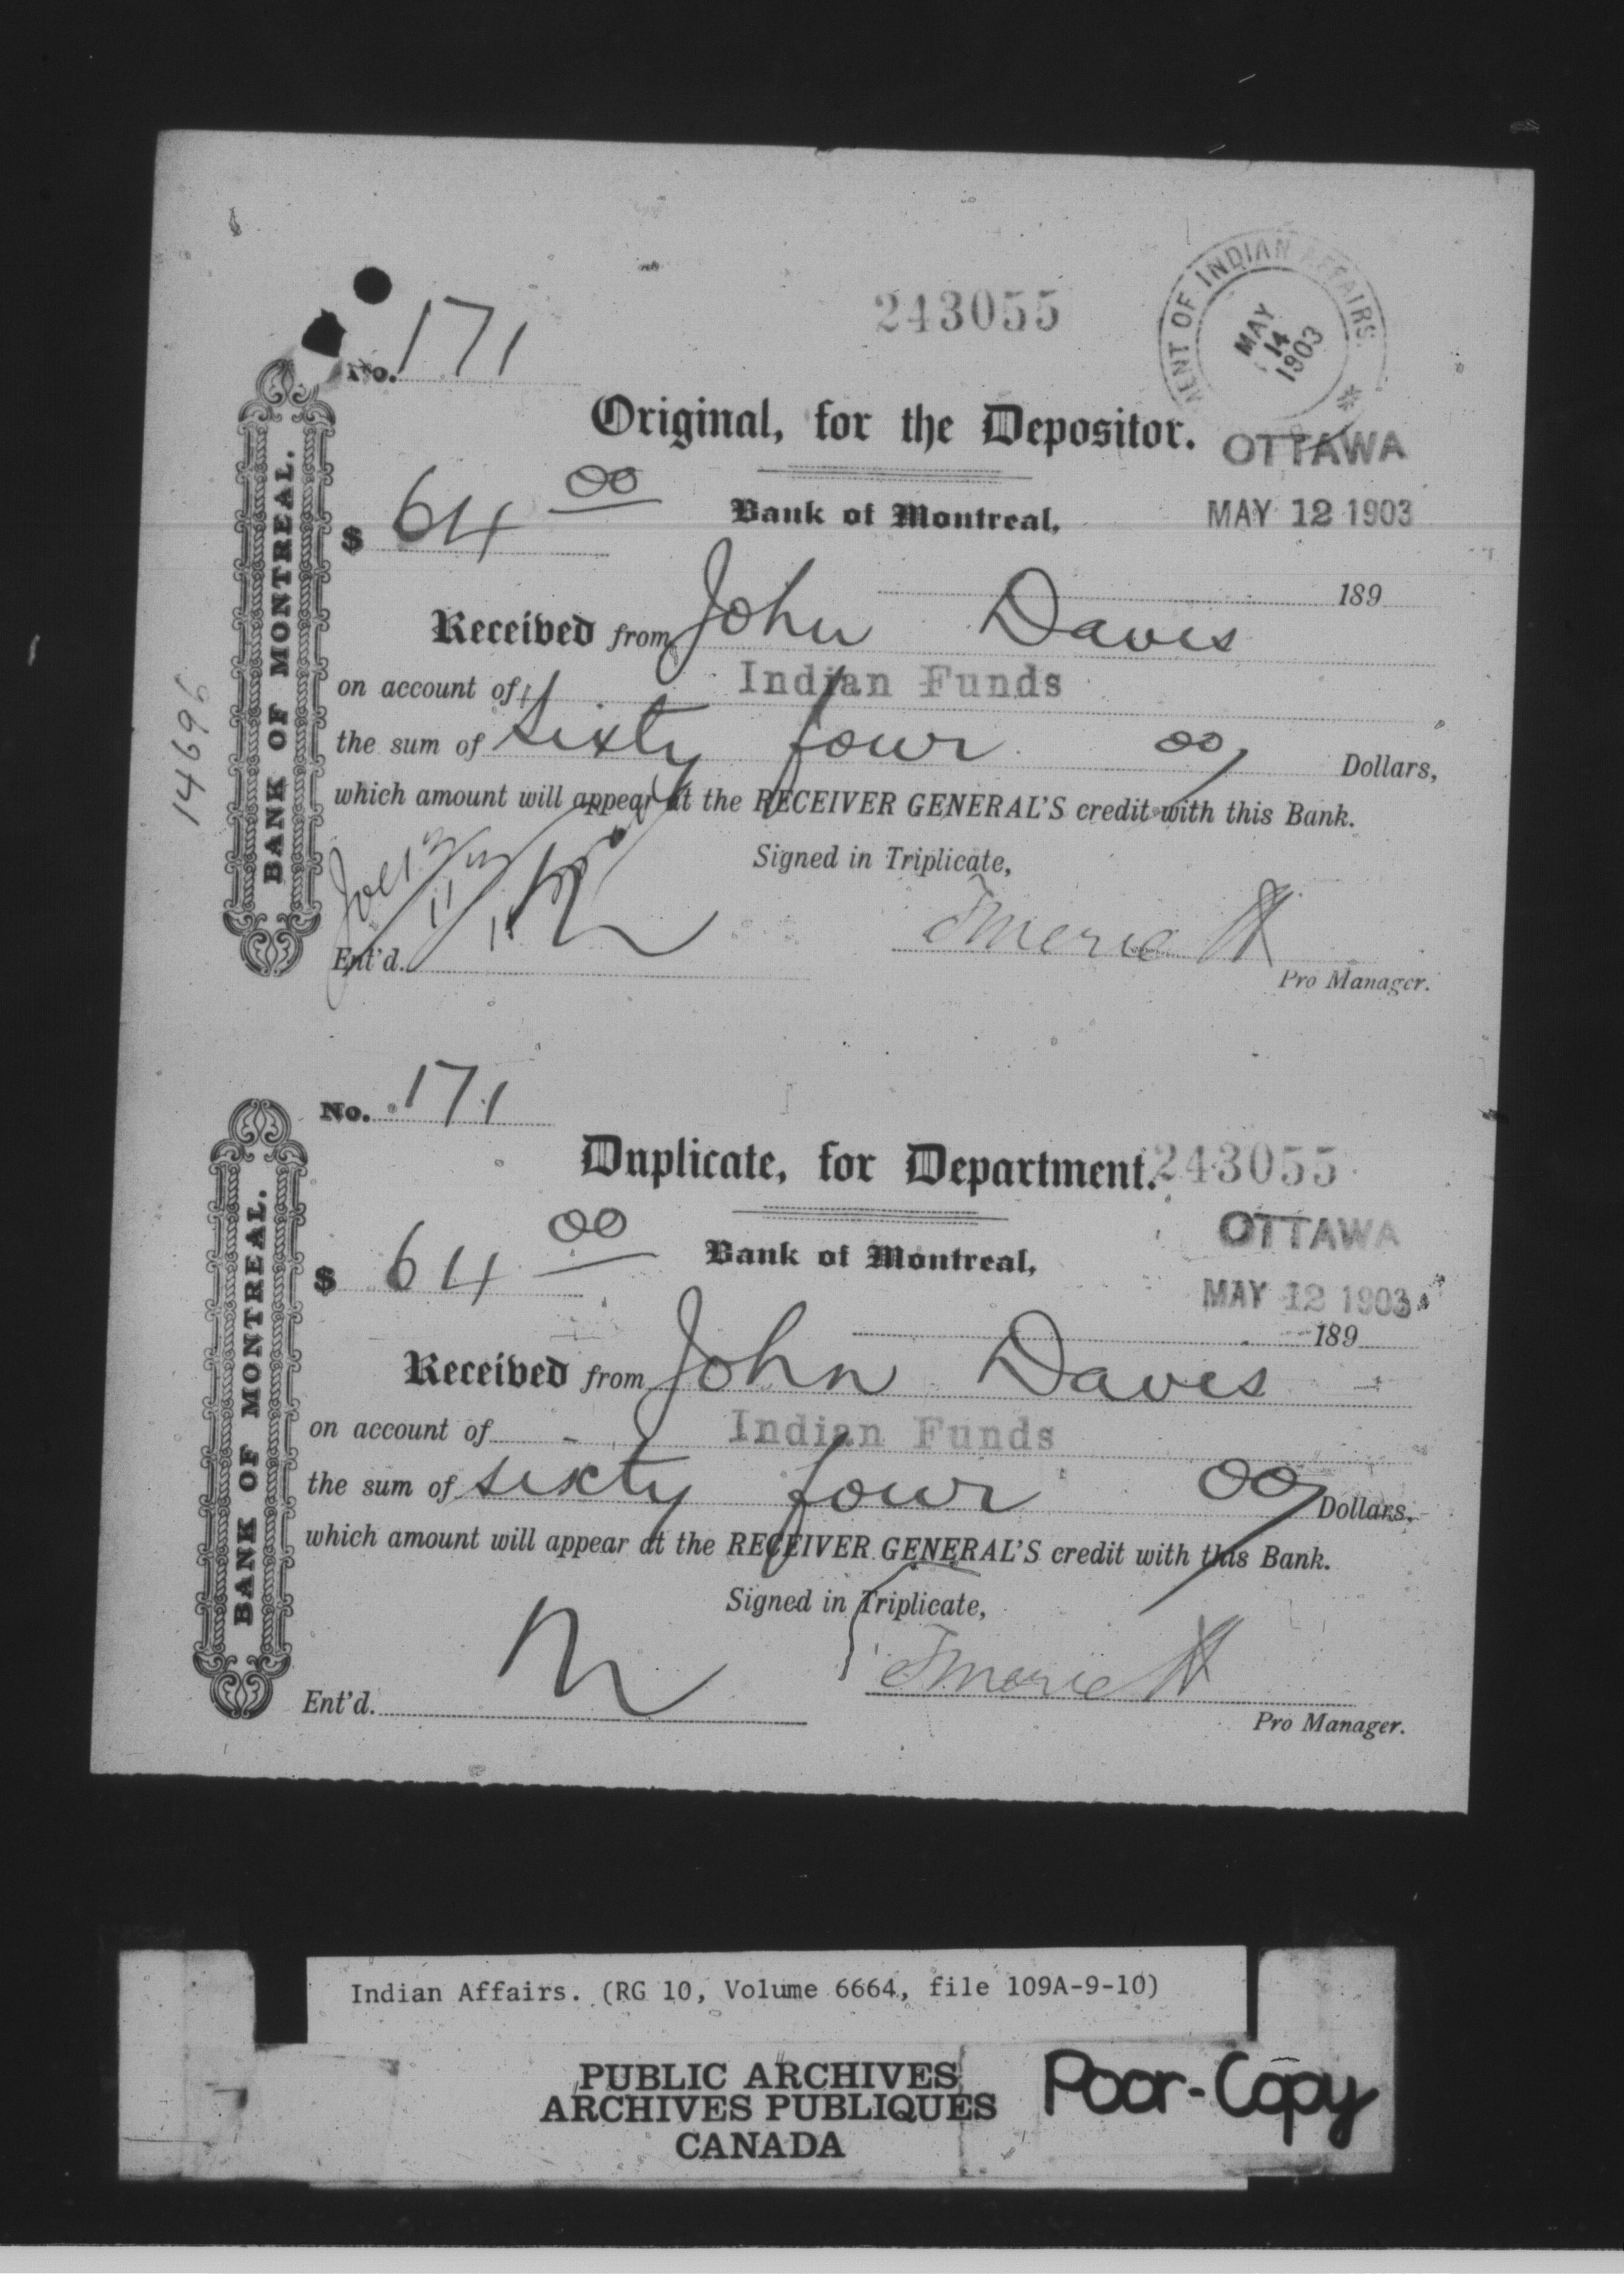 243055
DEPARTMENT OF INDIAN AFFAIRS
MAY
14
1903
No. 171
Original, for the Depositor.
OTTAWA
$ 64 00
Bank of Montreal,
MAY 12 1903
189
Received from John Davis
on account of Indian Funds
the sum of Sixty four 00/ Dollars,
which amount will appear at the RECEIVER GENERAL'S credit with this Bank.
Signed in Triplicate,
Ent'd.
Pro Manager.
BANK OF MONTREAL.
No. 171
Duplicate, for Department.
243055
OTTAWA
$ 64 00
Bank of Montreal,
MAY 12 1903
189
Received from John Davis
on account of Indian Funds
the sum of sixty four 00/ Dollars,
which amount will appear at the RECEIVER GENERAL'S credit with this Bank.
Signed in Triplicate,
Ent'd.
Pro Manager.
BANK OF MONTREAL.
Indian Affairs. (RG 10, Volume 6664, file 109A-9-10)
PUBLIC ARCHIVES
ARCHIVES PUBLIQUES
CANADA
Poor-Copy